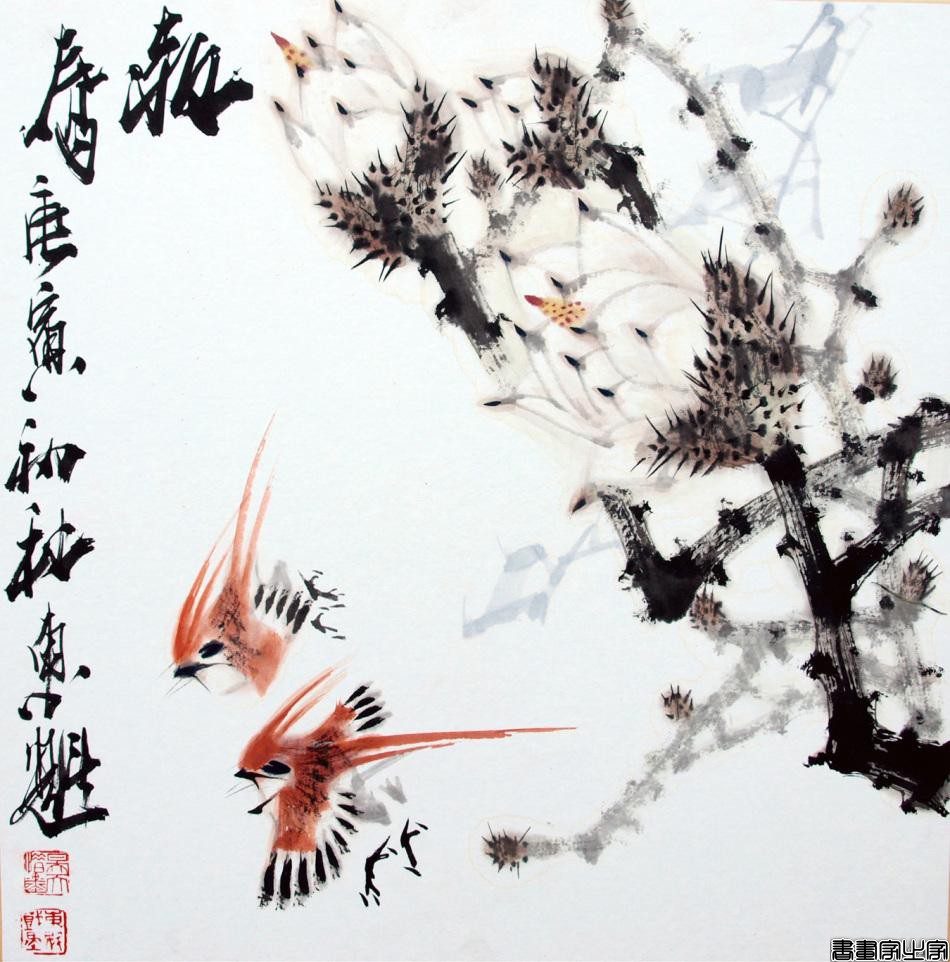 報
春庚寅初秋東
書畫家之家